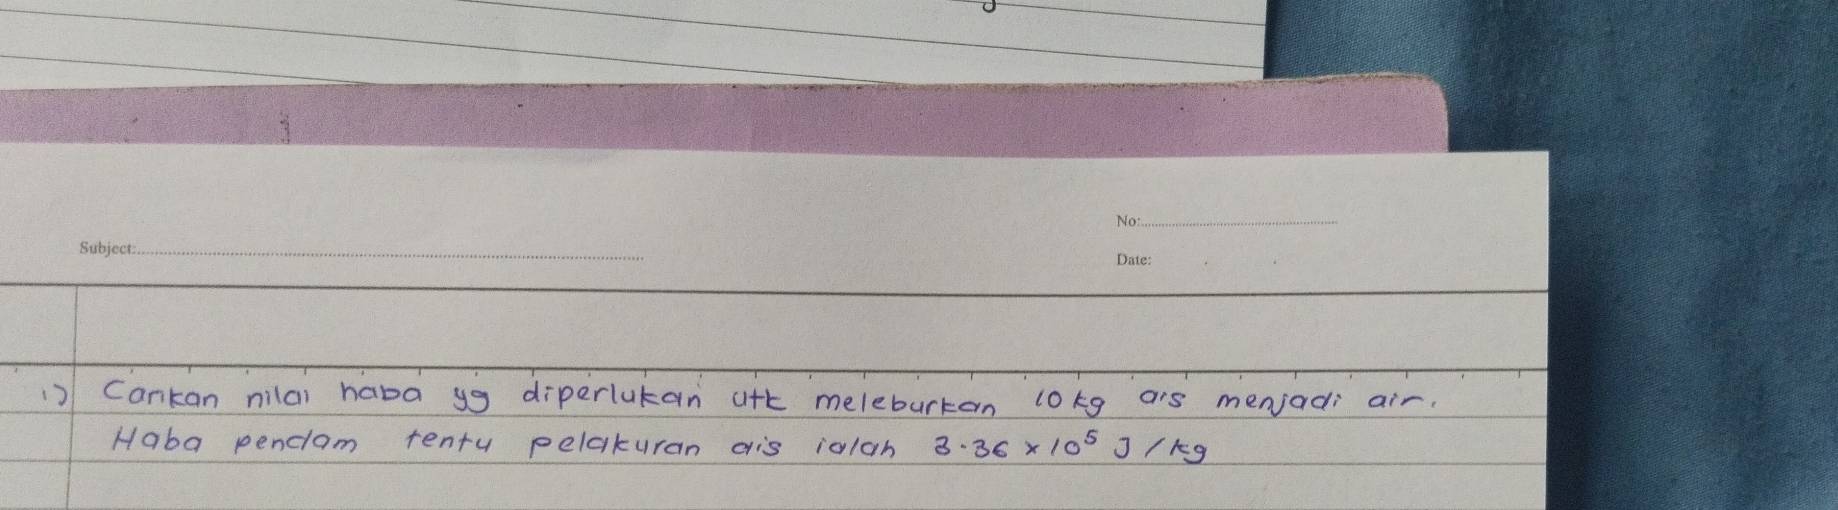 No:
Subject:
Date:
1) Carikan nilai haba yg diperlukan utk meleburkan 10 kg ais menjadi air.
Haba pendam tentu pelakuran ais ialah 3.36 × 10⁵ J / kg